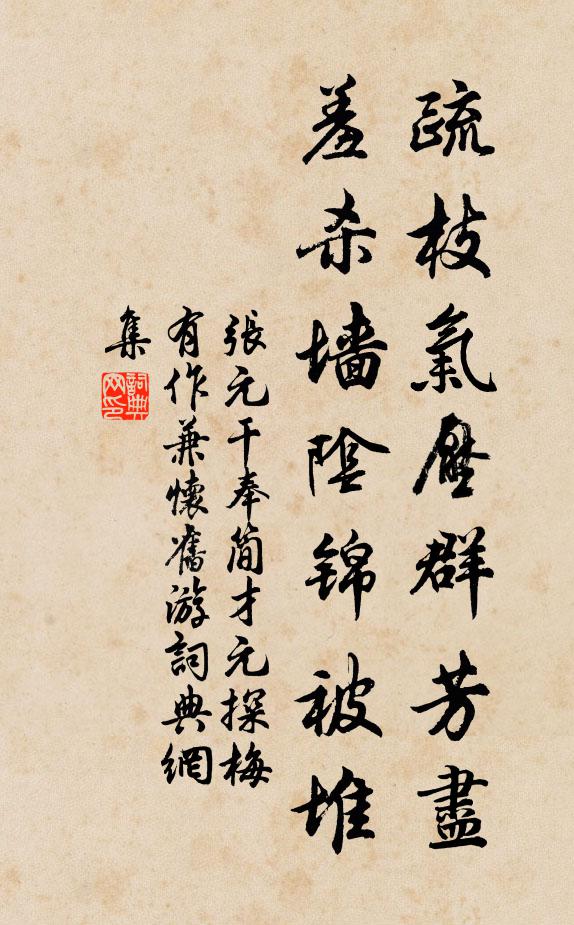 疏枝氣壓群芳盡
羞杀墙陰錦被堆
張元干奉簡才元探梅
有作兼懷舊游詞典網
集
詞典
网印